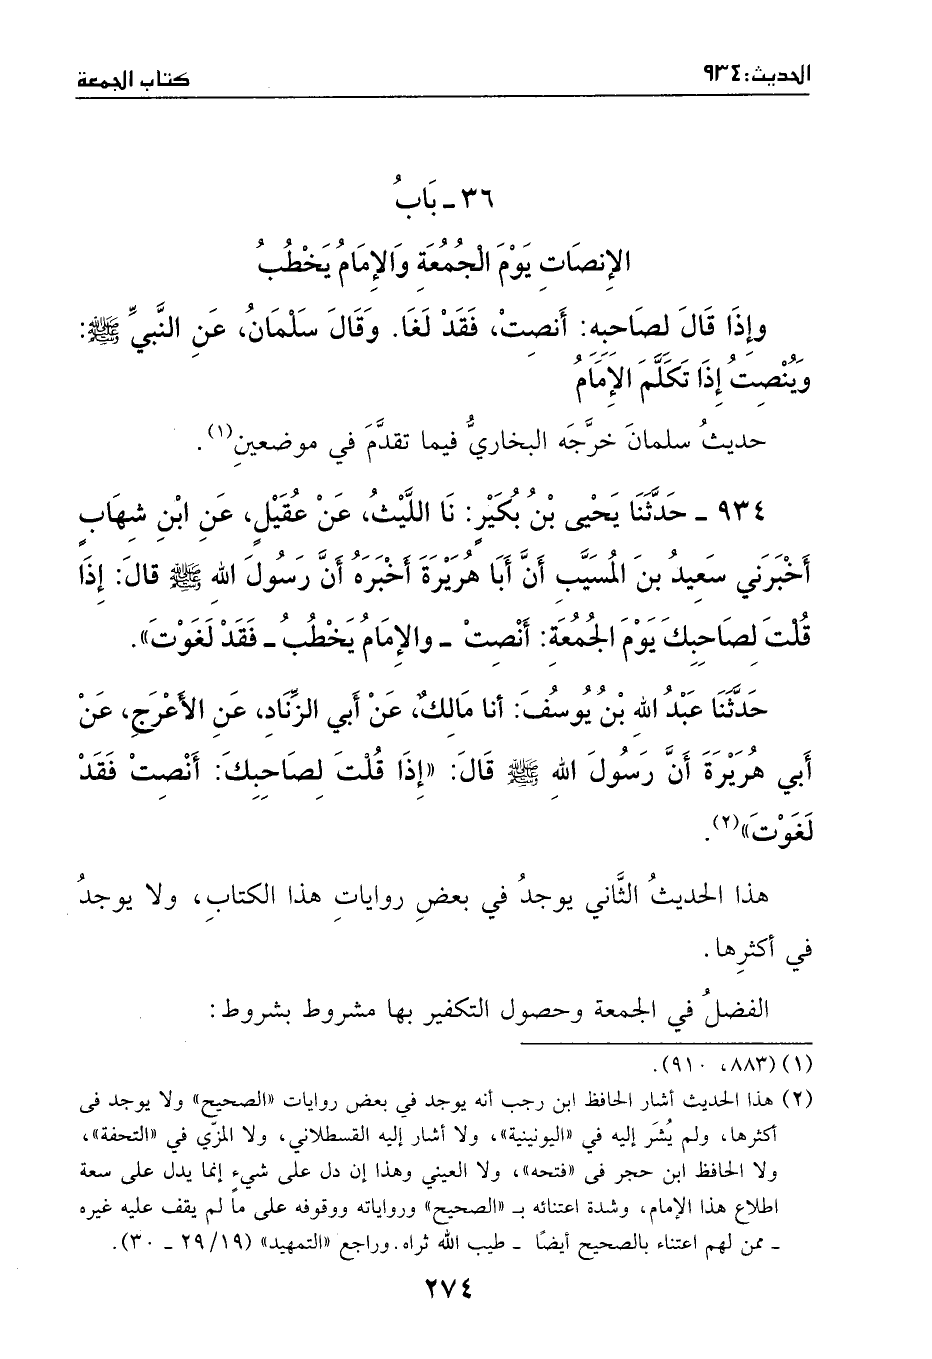 الحديث: ٩٣٤
كتاب الجمعة
٣٦ ـ بَابُ
الإنصَاتِ يَوْمَ الْجُمُعَةِ وَالإمَامُ يَخْطُبُ
وإِذَا قَالَ لصَاحبِه: أَنصِتْ، فَقَدْ لَغَا. وَقَالَ سَلْمَانُ، عَنِ النَّبيِّ ﷺ:
وَيُنْصِتُ إِذَا تَكَلَّمَ الإِمَامُ
حديثُ سلمانَ خرَّجَه البخاريُّ فيما تقدَّمَ في موضعينِ(١).
٩٣٤ ـ حَدَّثَنَا يَحْيى بْنُ بُكَيْرٍ: نَا اللَّيْثُ، عَنْ عُقَيْلٍ، عَنِ ابْنِ شِهَابٍ
أَخْبَرَني سَعِيدُ بنِ المُسَيَّبِ أَنَّ أَبَا هُرَيْرَةَ أَخْبَرَهُ أَنَّ رَسُولَ اللهِ ﷺ قالَ: إِذَا
قُلْتَ لصَاحِبِكَ يَوْمَ الجُمُعَةِ: أَنْصِتْ ـ والإمَامُ يَخْطُبُ ـ فَقَدْ لَغَوْتَ».
حَدَّثَنَا عَبْدُ اللهِ بْنُ يُوسُفَ: أنا مَالكٌ، عَنْ أَبي الزِّنَادِ، عَنِ الأَعْرَجِ، عَنْ
أَبي هُرَيْرَةَ أَنَّ رَسُولَ اللهِ ﷺ قَالَ: «إِذَا قُلْتَ لصَاحِبِكَ: أَنْصِتْ فَقَدْ
لَغَوْتَ»(٢).
هذا الحديثُ الثَّاني يوجدُ في بعضِ رواياتِ هذا الكتابِ، ولا يوجدُ
في أكثرِها.
الفضلُ في الجمعة وحصول التكفير بها مشروط بشروط:
(١) (٨٨٣، ٩١٠).
(٢) هذا الحديث أشار الحافظ ابن رجب أنه يوجد في بعض روايات «الصحيح» ولا يوجد فى
أكثرها، ولم يُشَر إليه في «اليونينية»، ولا أشار إليه القسطلاني، ولا المزّي في «التحفة»،
ولا الحافظ ابن حجر فى «فتحه»، ولا العيني وهذا إن دل على شيءٍ إنما يدل على سعة
اطلاع هذا الإمام، وشدة اعتنائه بـ «الصحيح» ورواياته ووقوفه على ما لم يقف عليه غيره
ـ ممن لهم اعتناء بالصحيح أيضًا ـ طيب الله ثراه. وراجع «التمهيد» (١٩/ ٢٩ ـ ٣٠).
٢٧٤